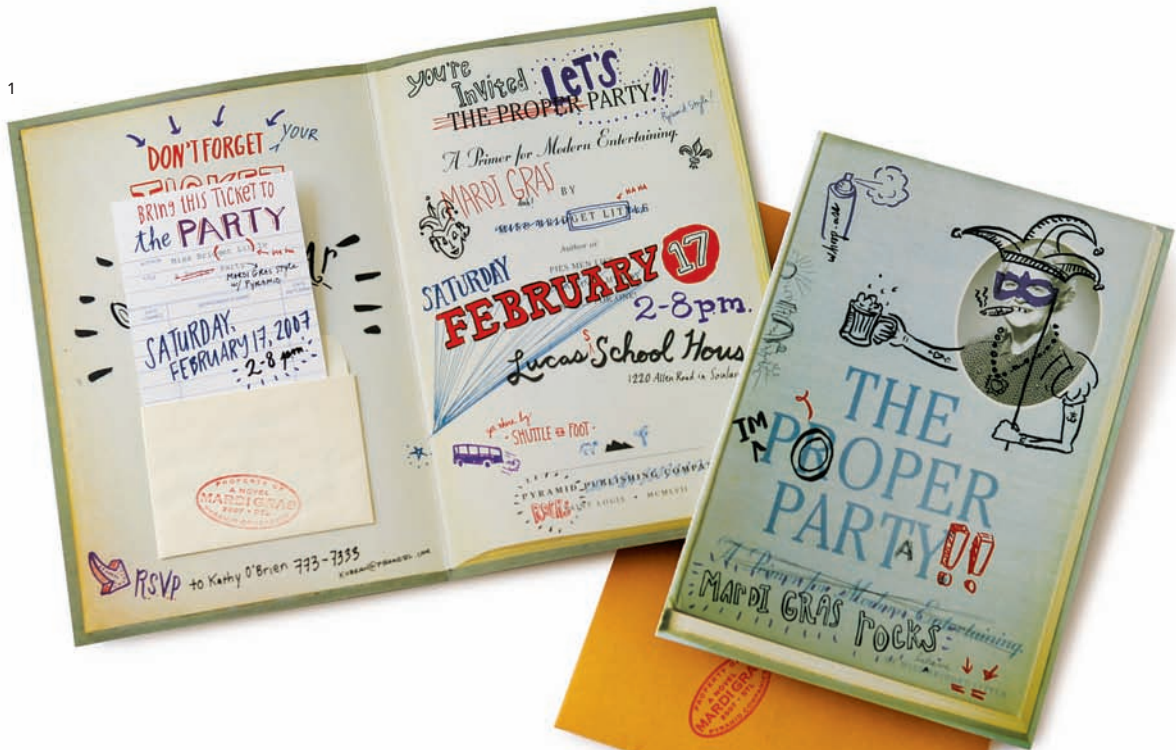 1
DON'T FORGET YOUR
TICKET
BRING THIS TICKET TO
the PARTY
MARDI GRAS STYLE
w/ PYRAMID
SATURDAY,
FEBRUARY 17, 2007
2-8 pm
PROPERTY OF
A NOVEL
MARDI GRAS
2007 · STL
PYRAMID COMPANY
RSVP to Kathy O'Brien 773-7333
YOU'RE
INVITED LET'S
THE PROPER PARTY!!
Pyramid Style!
A Primer for Modern Entertaining.
MARDI GRAS BY
HA HA
GET LIT
Author of
PIES MEN LIKE
SATURDAY
FEBRUARY 17
2-8pm.
Lucas School Hous
1220 Allen Road in Soular
SHUTTLE or FOOT
LET'S
PYRAMID PUBLISHING COMPA
ROCKS SAINT LOUIS · MCMLVII
whoop-ass
THE
IM A PROPER
PARTAY!!
A Primer for Modern Entertaining.
MARDI GRAS rocks
PROPERTY OF
A NOVEL
MARDI GRA
2007 · STL
PYRAMID COMPAN